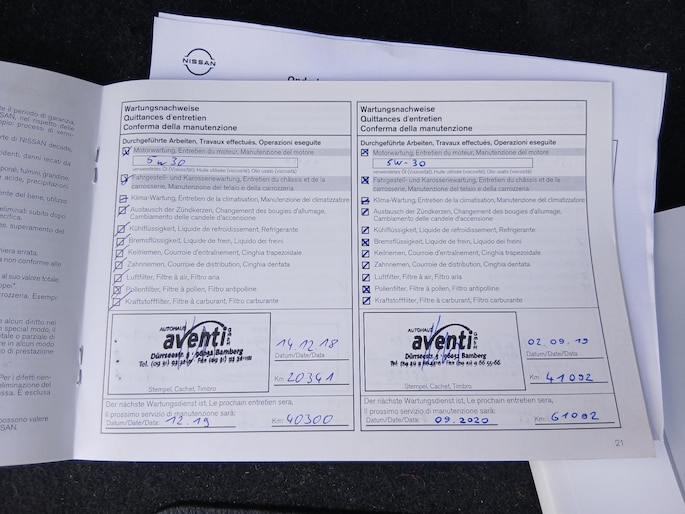 NISSAN
te il periodo di garanzia,
SAN, nel rispetto delle
opio: processi di verni-
rte di NISSAN decada,
identi, danni recati da
porali, fulmini, grandine,
acide, precipitazioni
ente del bene, utilizzo
eliminati subito dopo
ecifica.
s, superamento del
niera errata.
a non conforme alle
al suo valore totale.
opei*.
rozzeria. Esempi:
alcun diritto nei
n special modo, il
otale o parziale di
re in alcun modo
o di prestazione
Per i difetti rien-
eliminazione del
. È esclusa
possono valere
SAN.
Wartungsnachweise
Quittances d'entretien
Conferma della manutenzione
Durchgeführte Arbeiten, Travaux effectués, Operazioni eseguite
Motorwartung, Entretien du moteur, Manutenzione del motore
5w30
verwendetes Öl (Viscosität), Huile utilisée (viscosité), Olio usato (viscosità)
Fahrgestell- und Karosseriewartung, Entretien du châssis et de la
carrosserie, Manutenzione del telaio e della carrozzeria
Klima-Wartung, Entretien de la climatisation, Manutenzione del climatizzatore
Austausch der Zündkerzen, Changement des bougies d'allumage,
Cambiamento delle candele d'accensione
Kühlflüssigkeit, Liquide de refroidissement, Refrigerante
Bremsflüssigkeit, Liquide de frein, Liquido dei freini
Keilriemen, Courroie d'entraînement, Cinghia trapezoidale
Zahnriemen, Courroie de distribution, Cinghia dentata
Luftfilter, Filtre à air, Filtro aria
Pollenfilter, Filtre à pollen, Filtro antipolline
Kraftstofffilter, Filtre à carburant, Filtro carburante
AUTOHAUS
aventi
GmbH
Dürrseestr. 96052 Bamberg
Stempel, Cachet, Timbro
14.12.18
Datum/Date/Data
Km: 20341
Der nächste Wartungsdienst ist, Le prochain entretien sera,
Il prossimo servizio di manutenzione sarà:
Datum/Date/Data: 12.19 Km: 40300
Wartungsnachweise
Quittances d'entretien
Conferma della manutenzione
Durchgeführte Arbeiten, Travaux effectués, Operazioni eseguite
Motorwartung, Entretien du moteur, Manutenzione del motore
5w-30
verwendetes Öl (Viscosität), Huile utilisée (viscosité), Olio usato (viscosità)
Fahrgestell- und Karosseriewartung, Entretien du châssis et de la
carrosserie, Manutenzione del telaio e della carrozzeria
Klima-Wartung, Entretien de la climatisation, Manutenzione del climatizzatore
Austausch der Zündkerzen, Changement des bougies d'allumage,
Cambiamento delle candele d'accensione
Kühlflüssigkeit, Liquide de refroidissement, Refrigerante
Bremsflüssigkeit, Liquide de frein, Liquido dei freini
Keilriemen, Courroie d'entraînement, Cinghia trapezoidale
Zahnriemen, Courroie de distribution, Cinghia dentata
Luftfilter, Filtre à air, Filtro aria
Pollenfilter, Filtre à pollen, Filtro antipolline
Kraftstofffilter, Filtre à carburant, Filtro carburante
AUTOHAUS
aventi
GmbH
Dürrseestr. 96052 Bamberg
Stempel, Cachet, Timbro
02.09.19
Datum/Date/Data
Km: 41092
Der nächste Wartungsdienst ist, Le prochain entretien sera,
Il prossimo servizio di manutenzione sarà:
Datum/Date/Data: 09.2020 Km: 61092
21